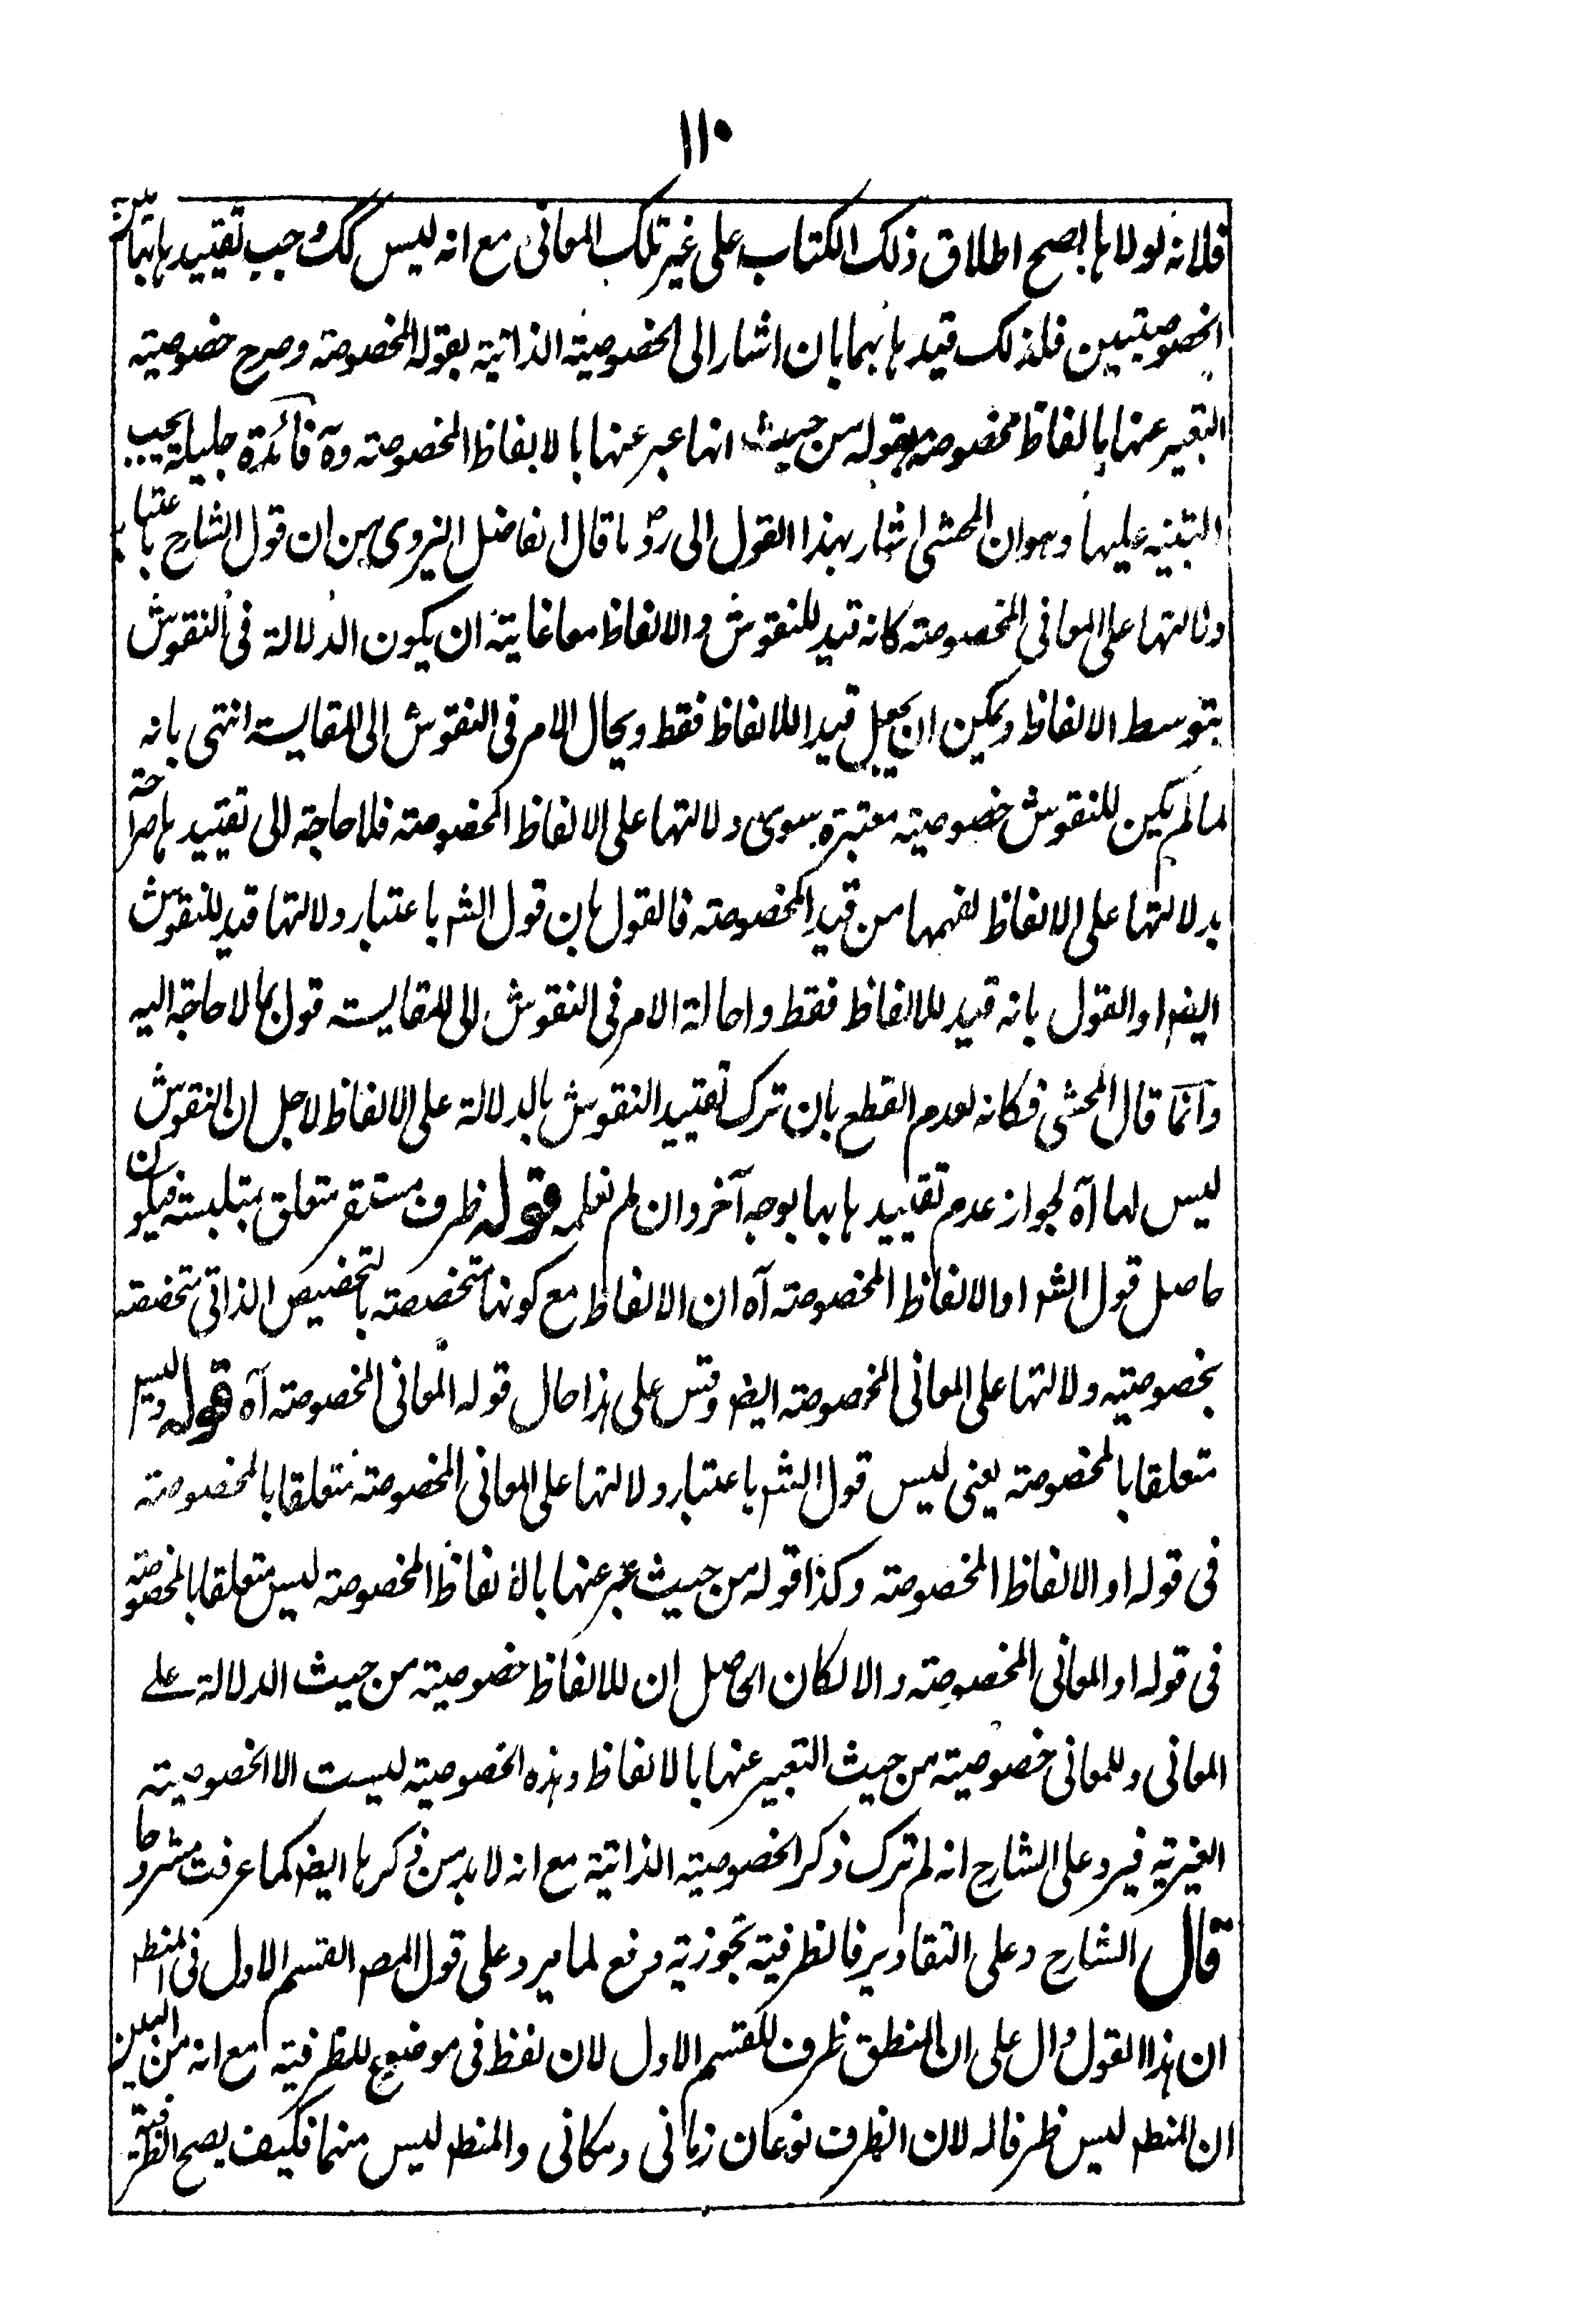 ١١٠
فلانه لولاها بصح اطلاق ذلك الكتاب على غير تلك المعانى مع انه ليس كك وجب تقييدها بتاتين
الخصوصيتين فلذلك قيدها بهما بان اشار الى الخصوصية الذاتية بقوله المخصوصة وصرح خصوصية
التعبير عنها بالفاظ مخصوصة بقوله من حيث انها عبر عنها بالالفاظ المخصوصة وآه فائدة جليلة يجب
التنبيه عليها وهو ان المحشى اشار بهذا القول الى رد ما قال الفاضل اليزدى من ان قول الشارح باعتبار
دلالتها على المعانى المخصوصة كانه قيد للنقوش والالفاظ معا غايته ان يكون الدلالة فى النقوش
بتوسط الالفاظ ويمكن ان يجعل قيدا للالفاظ فقط ويحال الامر فى النقوش الى المقايسة انتهى بانه
لما لم يكن للنقوش خصوصية معتبرة سوى دلالتها على الالفاظ المخصوصة فلا حاجة الى تقييدها صراحة
بدلالتها على الالفاظ لفهمها من قيد المخصوصة فالقول بان قول الشر باعتبار دلالتها قيد للنقوش
ايضا والقول بانه قيد للالفاظ فقط واحالة الامر فى النقوش الى المقايسة قول بما لا حاجة اليه
وانما قال المحشى فكانه لعدم القطع بان ترك تقييد النقوش بالدلالة على الالفاظ لاجل ان النقوش
ليس لها آه لجواز عدم تقييدها بها بوجه آخر وان لم نعلمه قوله ظرف مستقر متعلق بمتلبسة فيكون
حاصل قول الشر او الالفاظ المخصوصة آه ان الالفاظ مع كونها متخصصة بالتخصيص الذاتى متخصصة
بخصوصية دلالتها على المعانى المخصوصة ايضا وقس على هذا حال قوله المعانى المخصوصة آه قوله وليس
متعلقا بالمخصوصة يعنى ليس قول الشر باعتبار دلالتها على المعانى المخصوصة متعلقا بالمخصوصة
فى قوله او الالفاظ المخصوصة وكذا قوله من حيث عبر عنها بالالفاظ المخصوصة ليس متعلقا بالمخصوصة
فى قوله او المعانى المخصوصة والا لكان الحاصل ان للالفاظ خصوصية من حيث الدلالة على
المعانى وللمعانى خصوصية من حيث التعبير عنها بالالفاظ وهذه الخصوصية ليست الا الخصوصية
الغيرية فيرد على الشارح انه لم ترك ذكر الخصوصية الذاتية مع انه لا بد من ذكرها ايضا كما عرفت مشروحا
قال الشارح وعلى التقادير فالظرفية تجوزية دفع لما يرد على قول المصر القسم الاول فى المنطر
ان هذا القول دال على ان المنطق ظرف للقسم الاول لان لفظ فى موضوع للظرفية مع انه من البين
ان المنطر ليس ظرفا له لان الظرف نوعان زمانى ومكانى والمنطر ليس منهما فكيف يصح الظرفية